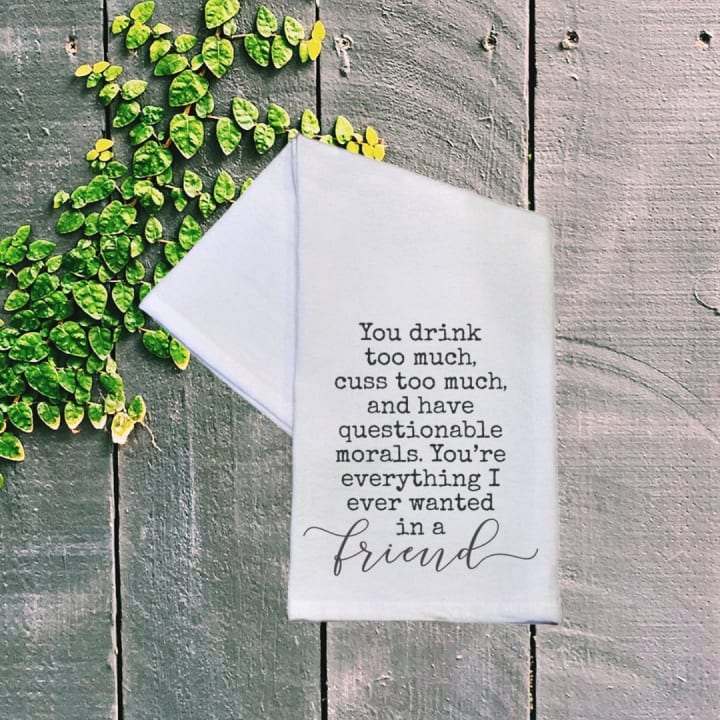 You drink
too much,
cuss too much,
and have
questionable
morals. You’re
everything I
ever wanted
in a
friend